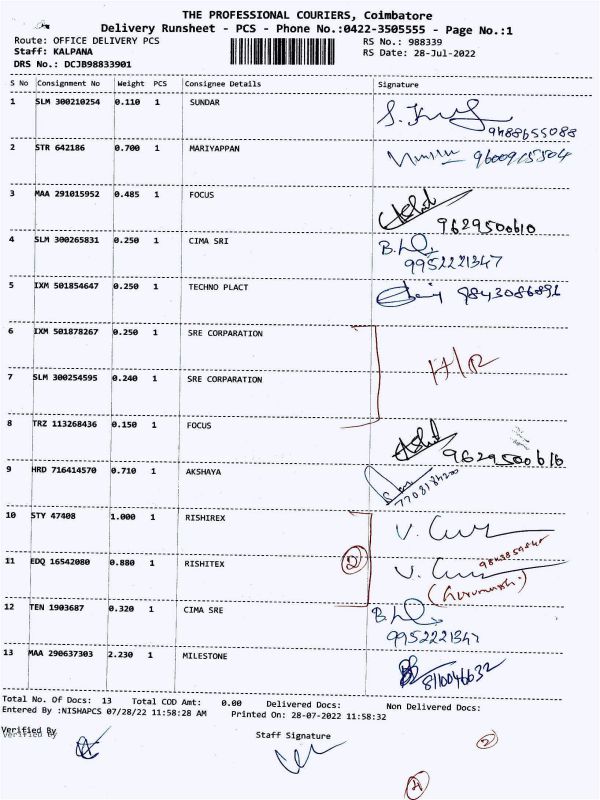 THE PROFESSIONAL COURIERS, Coimbatore
Delivery Runsheet - PCS - Phone No.:0422-3505555 - Page No.:1
Route: OFFICE DELIVERY PCS RS No.: 988339
Staff: KALPANA RS Date: 28-Jul-2022
DRS No.: DCJB98833901
S No Consignment No Weight PCS Consignee Details Signature
1 SLM 300210254 0.110 1 SUNDAR
9488655088
2 STR 642186 0.700 1 MARIYAPPAN 9600915504
3 MAA 291015952 0.485 1 FOCUS
9629500610
4 SLM 300265831 0.250 1 CIMA SRI
9952221347
5 IXM 501854647 0.250 1 TECHNO PLACT 9843086896
6 IXM 501878267 0.250 1 SRE CORPARATION
H/R
7 SLM 300254595 0.240 1 SRE CORPARATION
8 TRZ 113268436 0.150 1 FOCUS
9629500616
9 HRD 716414570 0.710 1 AKSHAYA
10 STY 47408 1.000 1 RISHIREX
11 EDQ 16542080 0.880 1 RISHITEX
2
12 TEN 1903687 0.320 1 CIMA SRE
9952221347
13 MAA 290637303 2.230 1 MILESTONE
8110046632
Total No. Of Docs: 13 Total COD Amt: 0.00 Delivered Docs: Non Delivered Docs:
Entered By :NISHAPCS 07/28/22 11:58:28 AM Printed On: 28-07-2022 11:58:32
Verified By Staff Signature
Verified By
2